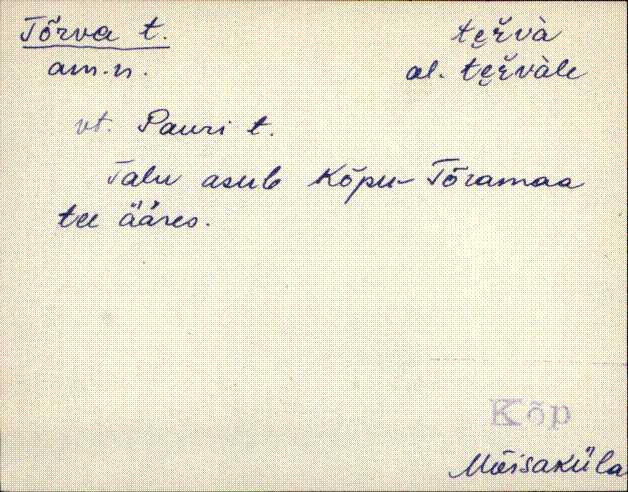 Tõrva t. te̮r̆và
am. n. al. te̮r̆vàle
vt. Pauri t.
Talu asub Kõpu-Tõramaa
tee ääres.
Kõp
Mõisaküla